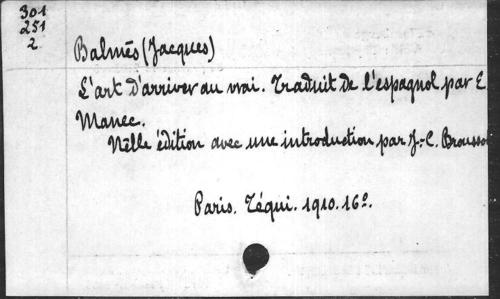 301
251
2
Balmès (Jacques)
L'art d'arriver au vrai. Traduit de l'espagnol par E
Manec.
Nelle édition avec une introduction par J.-C. Brousso
Paris. Téqui. 1910. 16º.